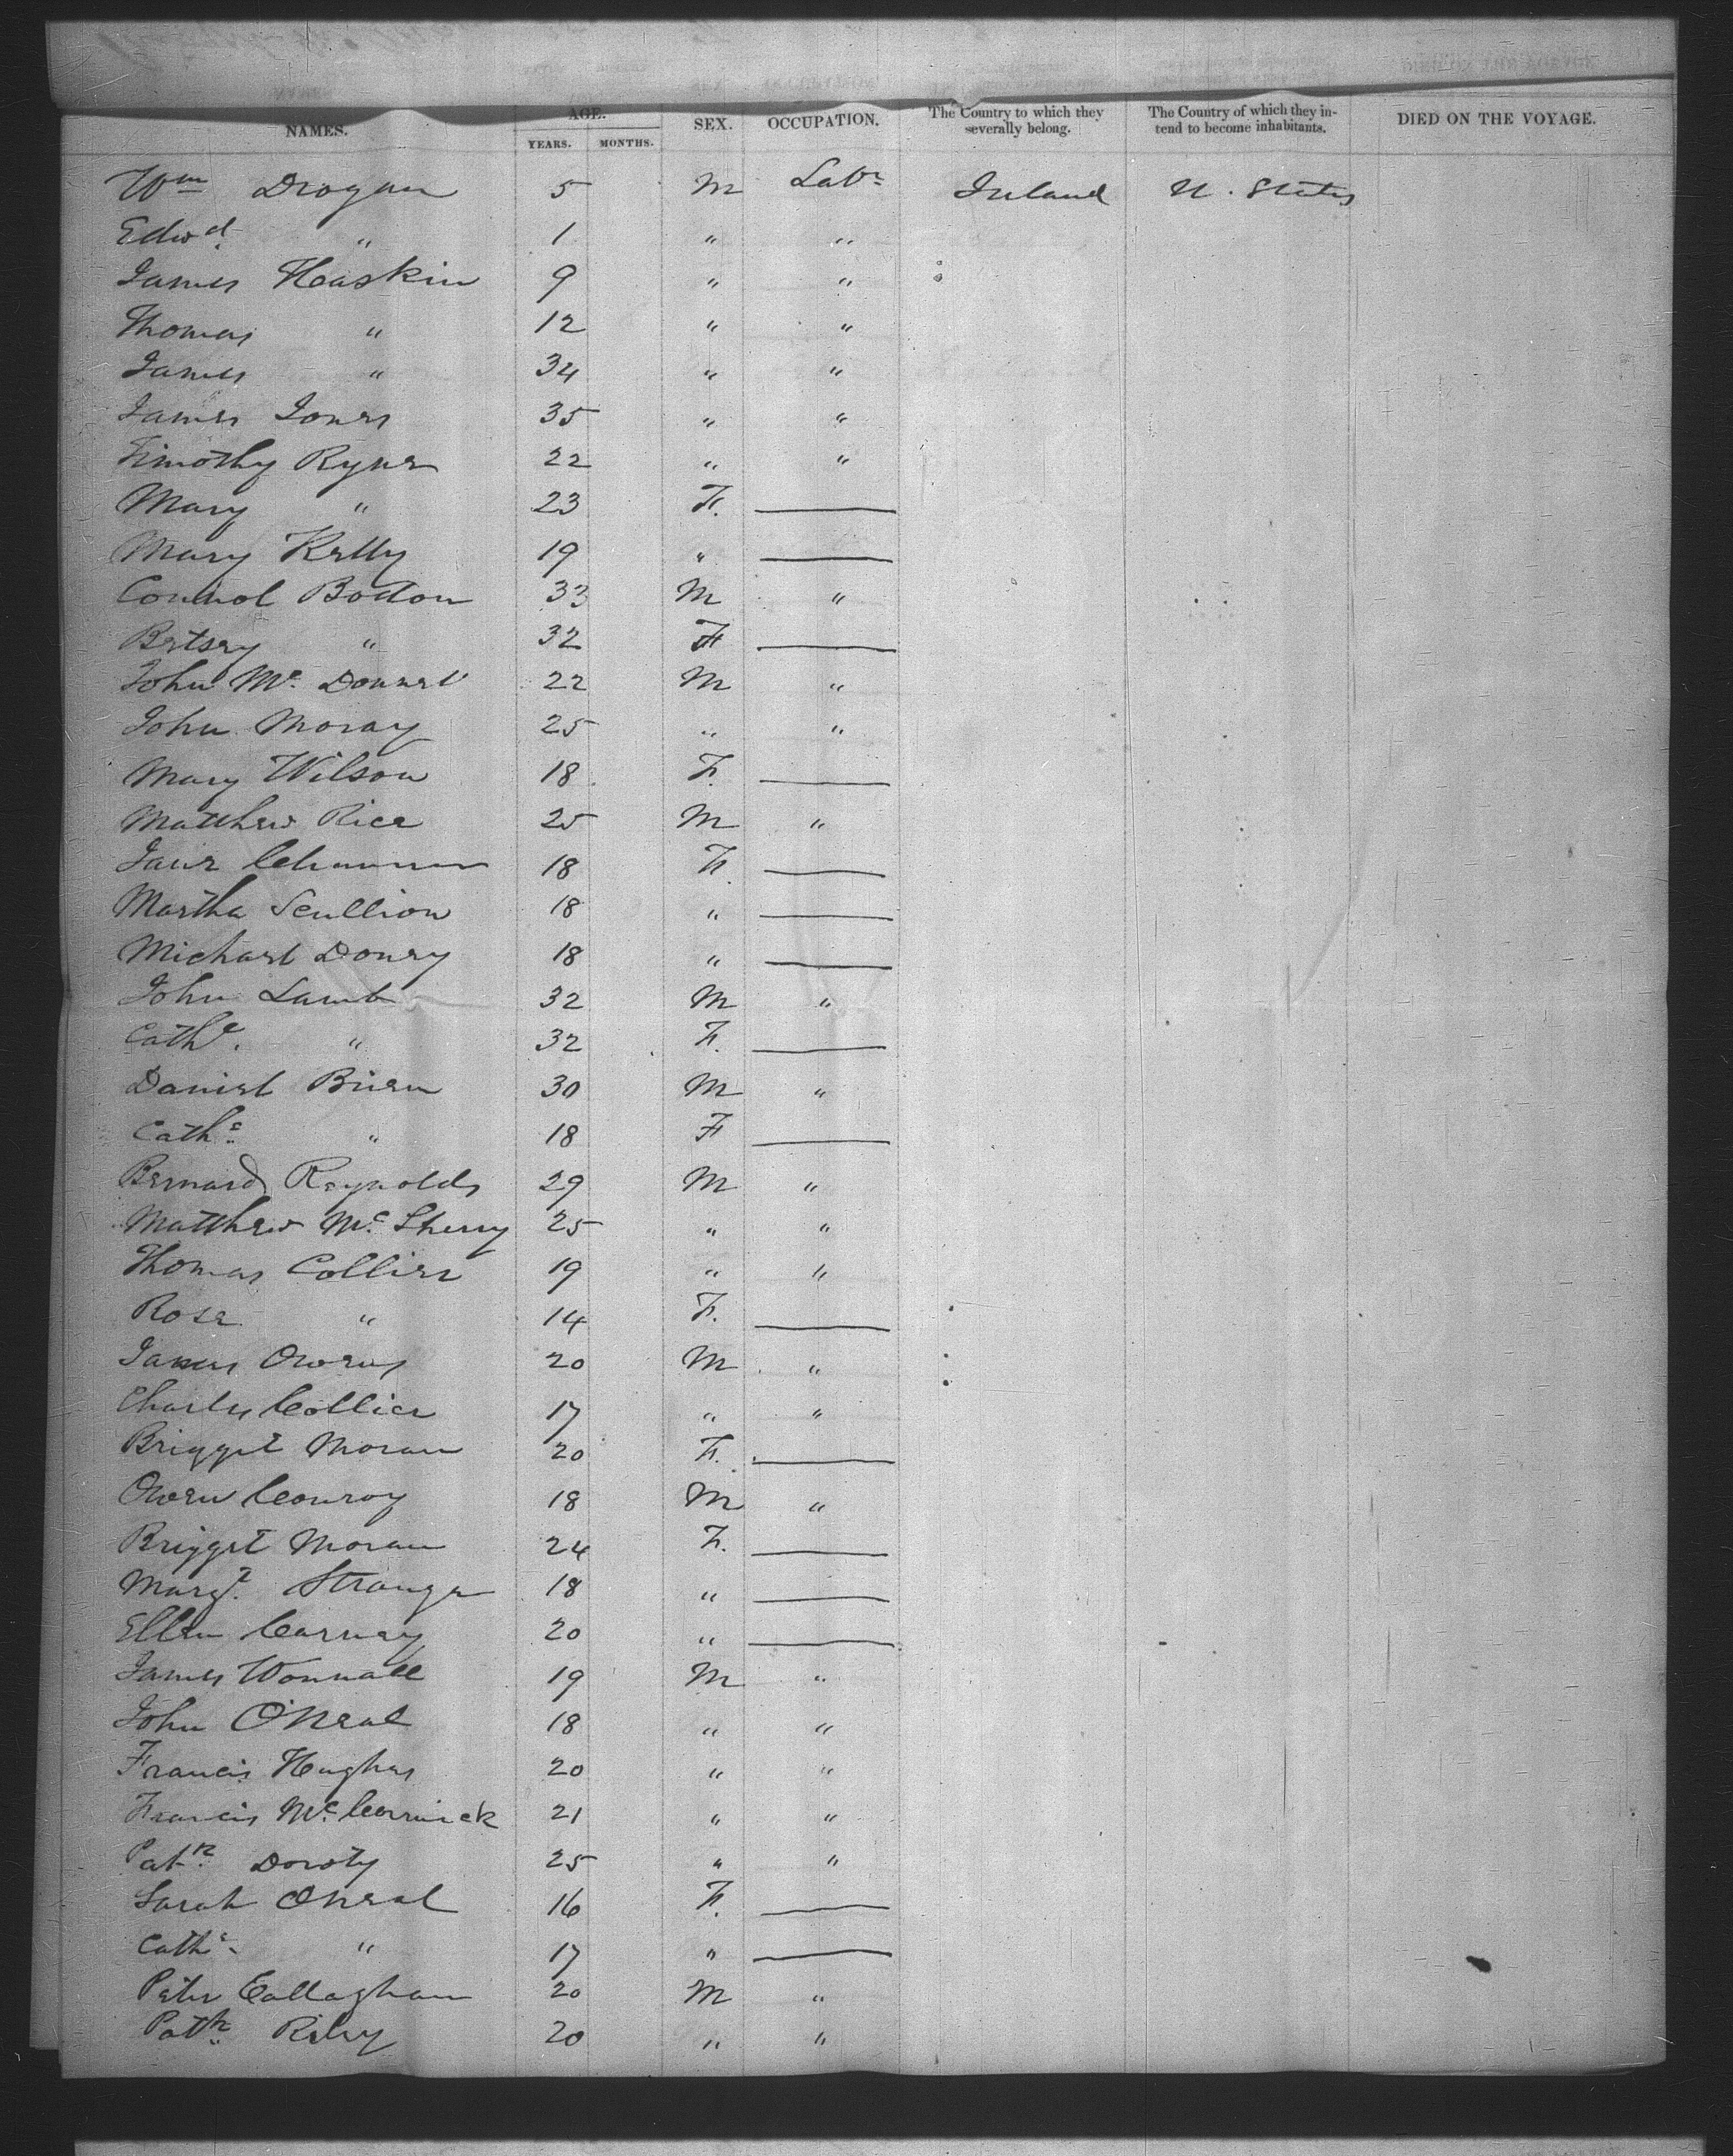 NAMES. AGE. YEARS. MONTHS. SEX. OCCUPATION. The Country to which they severally belong. The Country of which they in-tend to become inhabitants. DIED ON THE VOYAGE.
Wm Drogan 5 M Labr Ireland U. States
Edwd " 1 " "
James Haskin 9 " "
Thomas " 12 " "
James " 34 " "
James Jones 35 " "
Timothy Ryner 22 " "
Mary " 23 F.
Mary Kelly 19 "
Connol Bodon 33 M "
Betsey " 32 F
John Mc Donnel 22 M "
John Moray 25 " "
Mary Wilson 18 F.
Matthew Rice 25 M "
Jane 18 F.
Martha Scullion 18 "
Michael Doney 18 "
John Lamb 32 M "
Cathe. " 32 F.
Daniel Brien 30 M "
Cathe " 18 F
Bernard Reynolds 29 M "
Matthew Mc Sherry 25 " "
Thomas Collier 19 " "
Rose " 14 F.
James Owens 20 M "
Charles Collier 17 " "
Brigget Moran 20 F.
Owen Conroy 18 M "
Brigget Moran 24 F.
Margt. Strange 18 "
Ellen Carney 20 "
James Wonnall 19 M "
John O'Neal 18 " "
Francis Hughes 20 " "
Francis Mc Cormick 21 " "
Patk Doroty 25 " "
Sarah ONeal 16 F.
Cathe " 17 "
Peter Callaghan 20 M "
Patk Riley 20 " "